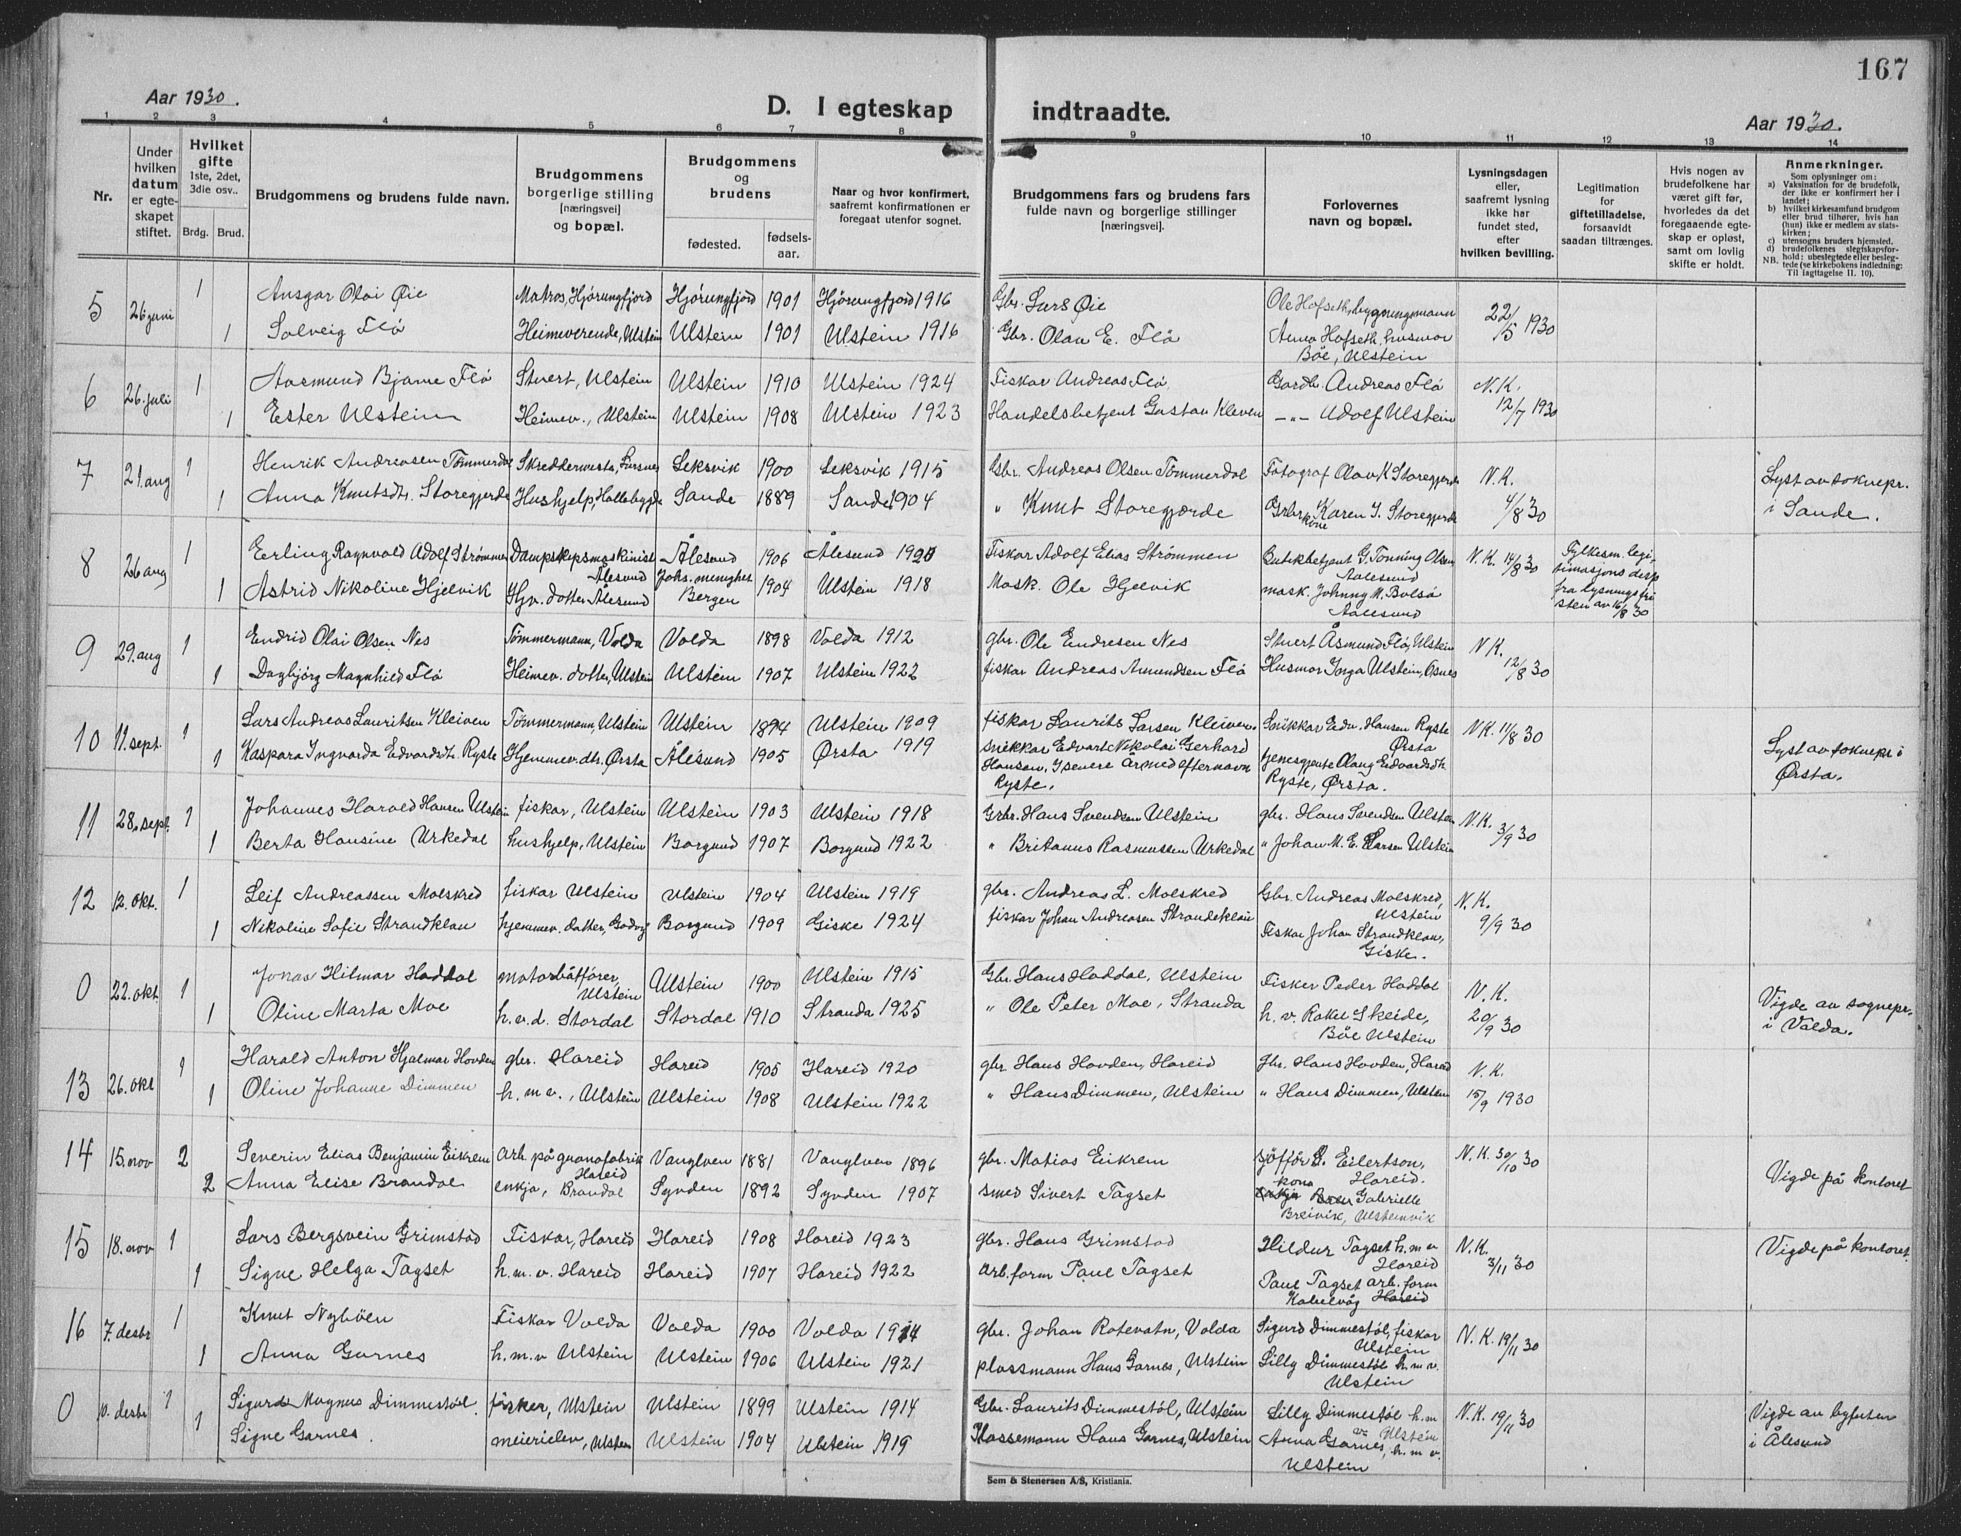 167
Aar 1930.
D. I egteskap indtraadte.
Aar 1930.
1 2 3 4 5 6 7 8 9 10 11 12 13 14
Nr.
Under hvilken datum er egteskapet stiftet.
Hvilket gifte 1ste, 2det, 3die osv..
Brdg. Brud.
Brudgommens og brudens fulde navn.
Brudgommens borgerlige stilling [næringsvei] og bopæl.
Brudgommens og brudens
fødested. fødsels-aar.
Naar og hvor konfirmert, saafremt konfirmationen er foregaat utenfor sognet.
Brudgommens fars og brudens fars fulde navn og borgerlige stillinger [næringsvei].
Forlovernes navn og bopæl.
Lysningsdagen eller, saafremt lysning ikke har fundet sted, efter hvilken bevilling.
Legitimation for giftetilladelse, forsaavidt saadan tiltrænges.
Hvis nogen av brudefolkene har været gift før, hvorledes da det foregaaende egteskap er opløst, samt om lovlig skifte er holdt.
Anmerkninger.
Som oplysninger om:
a) Vaksination for de brudefolk, der ikke er konfirmert her i landet;
b) hvilket kirkesamfund brudgom eller brud tilhører, hvis han (hun) ikke er medlem av statskirken;
c) utensogns bruders hjemsted.
d) brudefolkenes slegtskapsforhold: ubeslegtede eller beslegtede (se kirkebokens indledning:
NB. Til iagttagelse II. 10).
5 26 juni 1 Ansgar Olai Øie Matros, Hjørungfjord Hjørungfjord 1901 Hjørungfjord 1916 Gbr. Lars Øie Ole Hofseth, bygningsmann 22/5 1930
1 Solveig Flø Heimeverende, Ulstein Ulstein 1901 Ulstein 1916 Gbr. Olau E. Flø Anna Hofseth, husmor
Böe, Ulstein
6 26. juli 1 Aasmund Bjarne Flø Stuert, Ulstein Ulstein 1910 Ulstein 1924 Fiskar Andreas Flø Gardbr. Andreas Flø N.K.
1 Ester Ulstein Heimev., Ulstein Ulstein 1908 Ulstein 1923 Handelsbetjent Gustav Kleven -"- Adolf Ulstein 12/7 1930
7 21. aug 1 Henrik Andreasen Tømmerdal Skreddermester, Leksvik 1900 Leksvik 1915 Gbr. Andreas Olsen Tømmerdal Fotograf Olav K Storegjerde N.K. Lyst av soknepr.
1 Anna Knutsdtr. Storegjerde Hushjelp, Hallebygde Sande 1889 Sande 1904 " Knut Storegjerde Grbr kone Karen J. Storegjerde 4/8 30 i Sande.
8 26 aug 1 Erling Ragnvald Adolf Strømmen Dampskipsmaskinist Ålesund Ålesund 1906 Ålesund 1920 Fiskar Adolf Elias Strømmen Butikbetjent G. Tonning Olsen Aalesund N.K. 14/8 30 Fylkesm. legitimasjons disp fra lysningsfristen av 16/8 30
1 Astrid Nikoline Hjelvik Hjv. dotter Ålesund Johs. menighet Bergen 1904 Ulstein 1918 Mask. Ole Hjelvik mask. Johnny M. Bolsø Aalesund
9 29. aug 1 Endrid Olai Olsen Nes Tømmermann, Volda Volda 1898 Volda 1912 gbr. Ole Endresen Nes Stuert Åsmund Flø, Ulstein N.K.
1 Dagbjørg Magnhild Flø Heimev. dotter, Ulstein Ulstein 1907 Ulstein 1922 fiskar Andreas Amundsen Flø Husmor Inga Ulstein, Osnes 12/8 30
10 11. sept. 1 Lars Andreas Lauritsen Kleiven Tømmermann, Ulstein Ulstein 1894 Ulstein 1909 fiskar Laurits Larsen Kleiven. Snikkar Edv. Hansen Ryste Ørsta N.K. 11/8 30 Lyst av soknepr i Ørsta.
1 Kaspara Ingvarda Edvardsdtr. Ryste Hjemmev. dtr. Ørsta Ålesund 1905 Ørsta 1919 snikkar Edvart Nikolai Gerhard Hansen, Isenere år med efternavn Ryste. tjenesgjente Olaug Edvardsdtr Ryste, Ørsta.
11 28. sept. 1 Johannes Harald Hansen Ulstein fiskar, Ulstein Ulstein 1903 Ulstein 1918 Grbr. Hans Svendsen Ulstein gbr. Hans Svendsen Ulstein N.K. 3/9 30
1 Berta Hansine Urkedal hushjelp, Ulstein Borgund 1907 Borgund 1922 " Britanus Rasmussen Urkedal " Johan M. E. Larsen Ulstein
12 12. okt. 1 Leif Andreassen Molskred fiskar Ulstein Ulstein 1904 Ulstein 1919 gbr. Andreas L. Molskred Gbr. Andreas Molskred, Ulstein N.K.
1 Nikoline Sofie Strandklau hjemmev. datter, Godøy Borgund 1909 Giske 1924 fiskar Johan Andreasen Strandeklau Fiskar Johan Strandklau, Giske. 9/9 30
0 22. okt 1 Jonas Hilmar Haddal motorbåtfører, Ulstein Ulstein 1900 Ulstein 1915 Gbr. Hans Haddal, Ulstein Fisker Peder Haddal N.K. Vigde av sognepr. i Volda.
1 Oline Marta Moe h.v.d. Stordal Stordal 1910 Stranda 1925 " Ole Peter Moe, Stranda h. v. Rakel Skeide, Böe Ulstein 20/9 30
13 26. okt 1 Harald Anton Hjalmar Hovden gbr. Hareid Hareid 1905 Hareid 1920 gbr. Hans Hovden, Hareid Gbr. Hans Hovden, Hareid N.K.
1 Oline Johanne Dimmen h.m.v., Ulstein Ulstein 1908 Ulstein 1922 " Hans Dimmen, Ulstein " Hans Dimmen, Ulstein 15/9 1930
14 15. nov 2 Severin Elias Benjamin Eikrem Arb. på guanofabrik Hareid Vanylven 1881 Vanylven 1896 gbr. Matias Eikrem sjåffør P. Eilertson, Hareid. N.K. 30/10 30 Vigde på kontoret
2 Anna Elise Brandal enkja, Brandal Syvden 1892 Syvden 1907 smed Sivert Tagset kona Gabrielle Breivik, Ulsteinvik
15 18. nov 1 Lars Bergsvein Grimstad Fiskar, Hareid Hareid 1908 Hareid 1923 gbr. Hans Grimstad Hildur Tagset h.m.v Hareid N.K. 3/11 30 Vigde på kontoret
1 Signe Helga Tagset h.m.v. Hareid Hareid 1907 Hareid 1922 arb.form Paul Tagset Paul Tagset arb. form Kabelvåg Hareid
16 7. desbr 1 Knut Nybøen Fiskar Volda Volda 1900 Volda 1914 gbr. Johan Rotevatn, Volda Sigurd Dimmestøl, fiskar Ulstein N.K. 19/11 30
1 Anna Garnes h.m.v Ulstein Ulstein 1906 Ulstein 1921 plassmann Hans Garnes, Ulstein Lilly Dimmestøl h.m.v. Ulstein
0 10. desbr 1 Sigurd Magnus Dimmestøl fisker, Ulstein Ulstein 1899 Ulstein 1914 Gbr. Laurits Dimmestøl, Ulstein Lilly Dimmestøl h.m v. Ulstein N.K. 19/11 30 Vigde av byfuten i Ålesund
1 Signe Garnes. meierielev, Ulstein Ulstein 1904 Ulstein 1919 Plassemann Hans Garnes, Ulstein Anna Garnes, h.m v. Ulstein
Sem & Stenersen A/S, Kristiania.